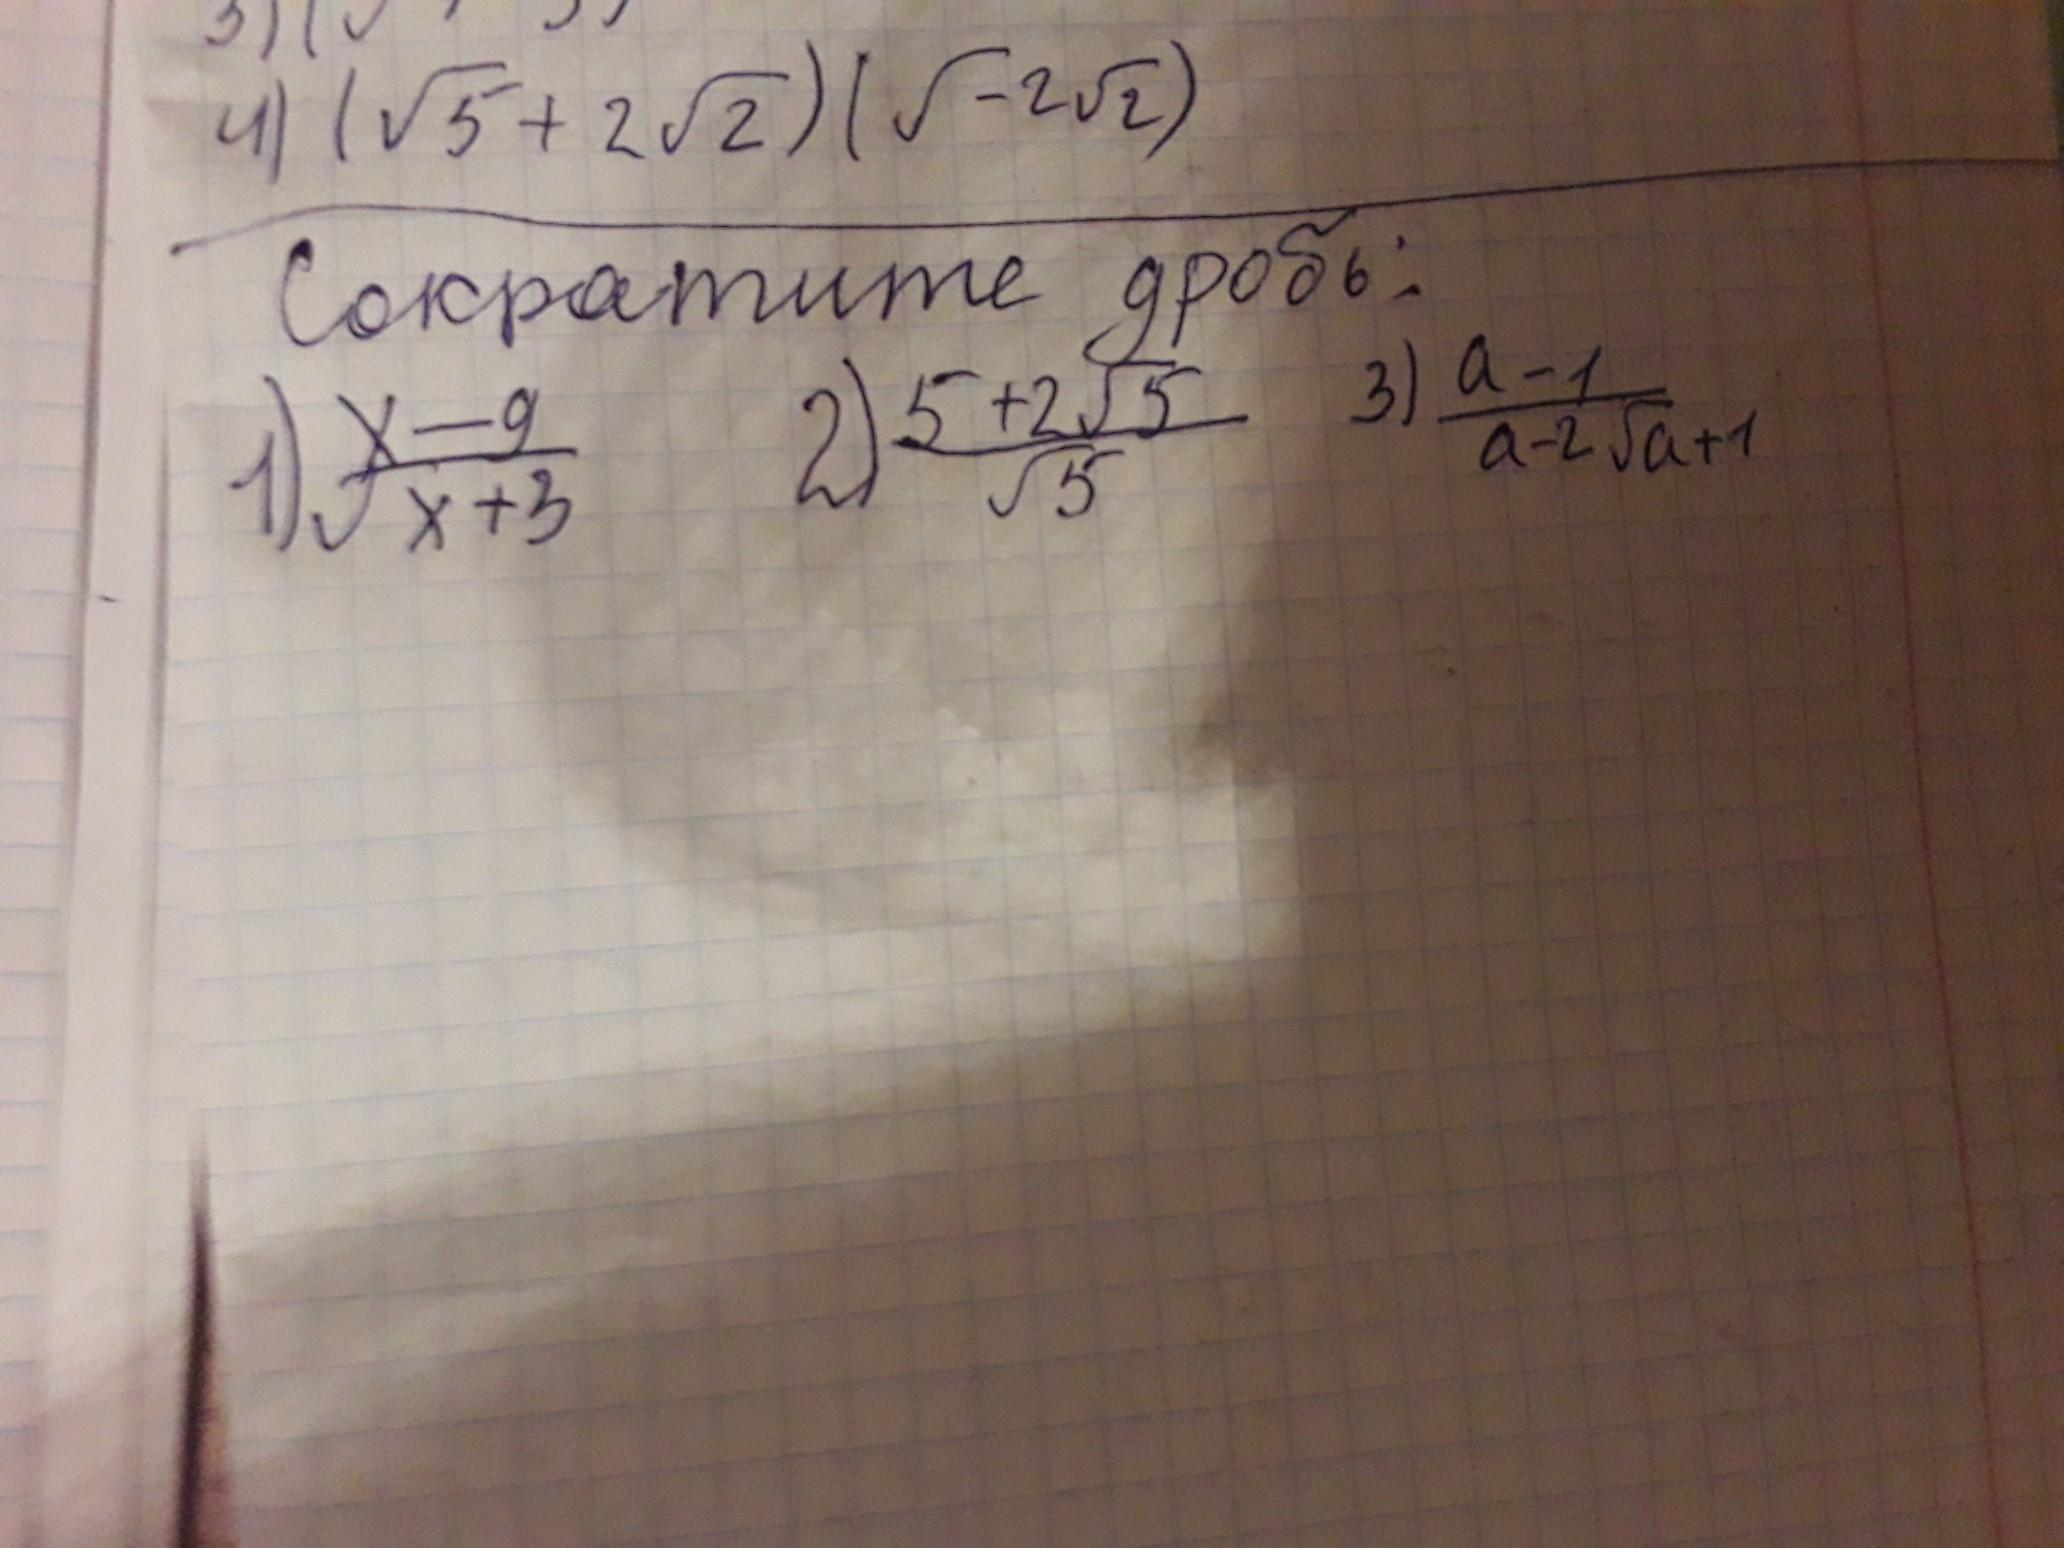 3) (√
4) (√5 + 2√2) (√ - 2√2)
Сократите дробь:
1) (x - 9)/(√x + 3) 2) (5 + 2√5)/√5 3) (a - 1)/(a - 2√a + 1)